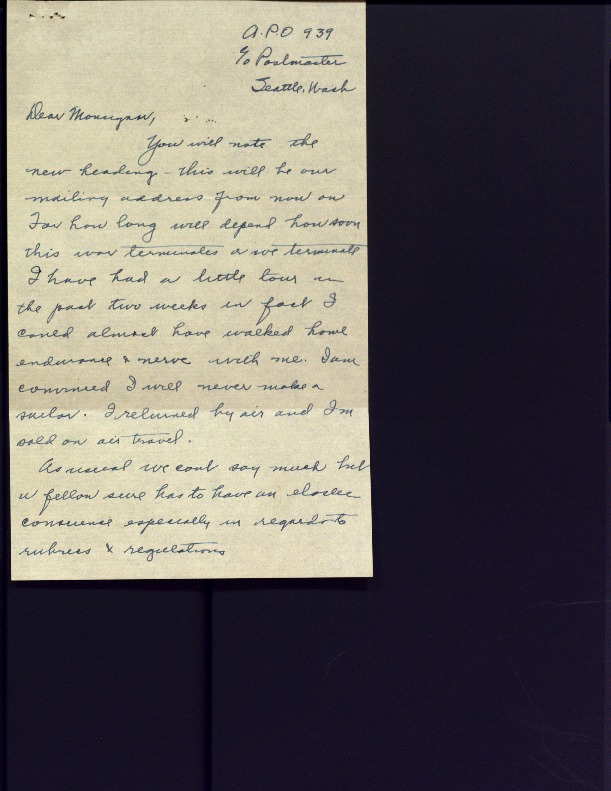 A.P.O 939
c/o Postmaster
Seattle, Wash
Dear Monsignor,
You will note the
new heading - this will be our
mailing address from now on
For how long will depend how soon
this war terminates or we terminate
I have had a little tour in
the past two weeks in fact I
could almost have walked home
endurance & nerve with me. I am
convinced I will never make a
sailor. I returned by air and I'm
sold on air travel.
As usual we can't say much but
a fellow sure has to have an elastic
conscience especially in regards to
rubrics & regulations